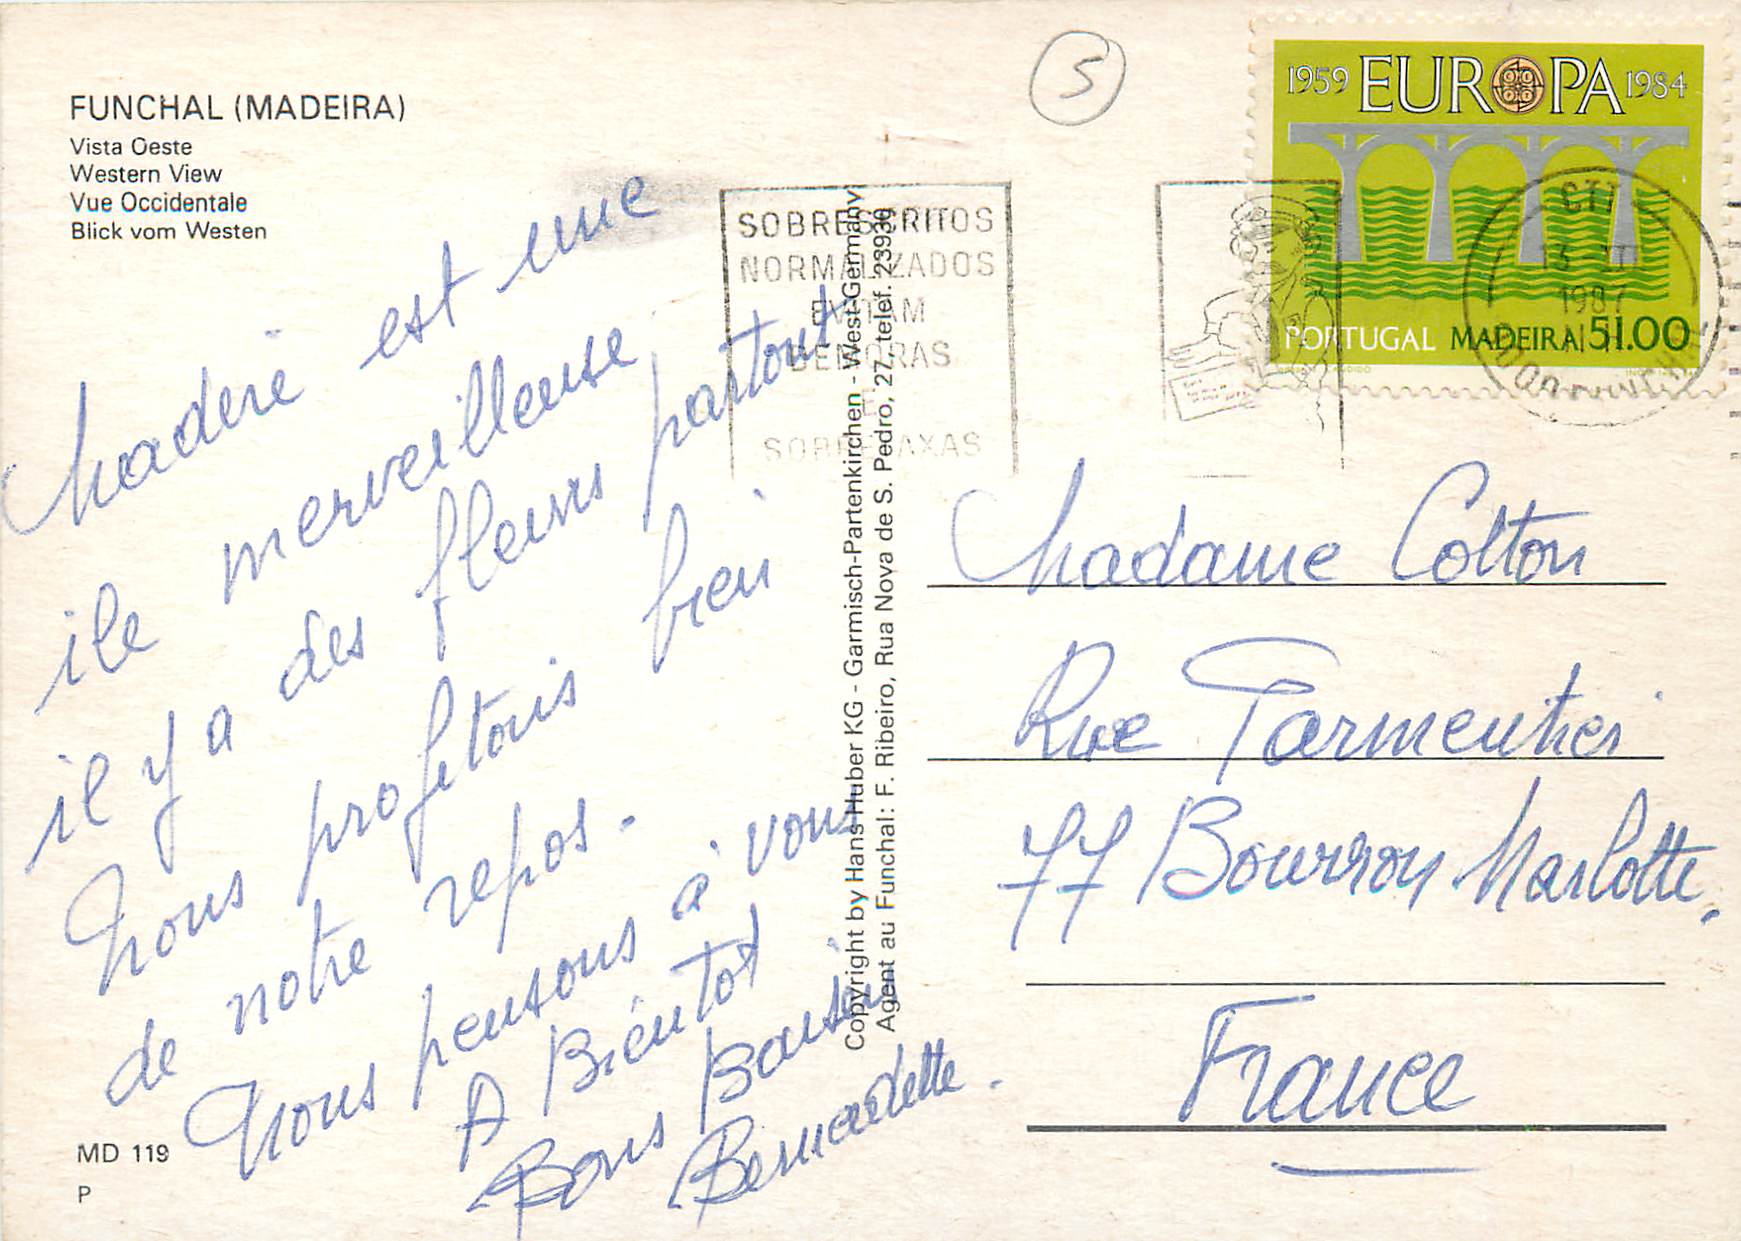 FUNCHAL (MADEIRA)
Vista Oeste
Western View
Vue Occidentale
Blick vom Westen
Madere est une
ile merveilleuse
il y a des fleurs partout
Nous profitons bien
de notre repos.
Nous pensons à vous
A Biéntot
Bons Baisers
Bernadette.
MD 119
P
Copyright by Hans Huber KG - Garmisch-Partenkirchen - West-Germany
Agent au Funchal: F. Ribeiro, Rua Nova de S. Pedro, 27, telef. 23930
5
SOBRESCRITOS
NORMALIZADOS
EVITAM
DEMORAS
E
SOBRETAXAS
1959 EUROPA 1984
PORTUGAL MADEIRA 51.00
CTT
1987
Madame Colton
Rue Parmentier
77 Bourron Marlotte.
France